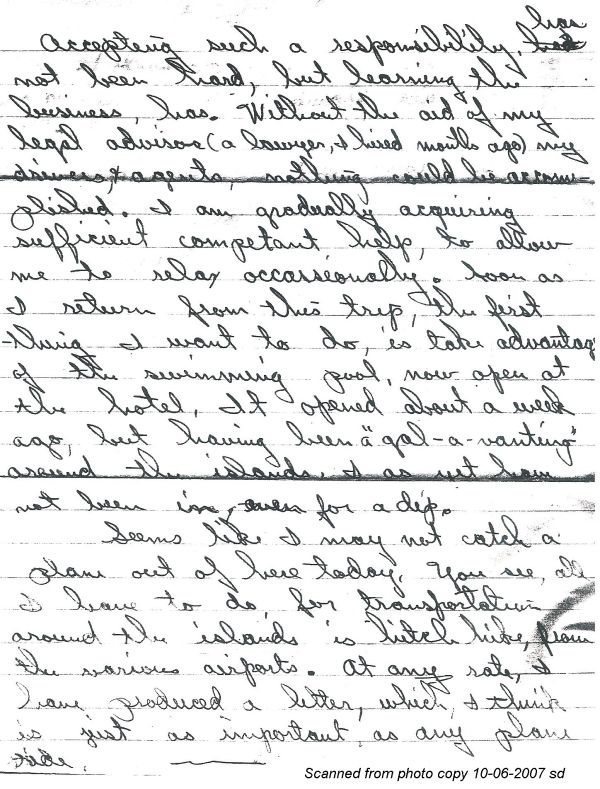 has
Accepting such a responsibility,
not been hard, but learning the
business, has. Without the aid of my
legal advisor (a lawyer, I hired months ago) my
drivers, & agents, nothing could be accom-
plished. I am gradually acquiring
sufficient competant help, to allow
me to relax occassionally. Soon as
I return from this trip, the first
thing I want to do, is take advantag
of the swimming pool, now open at
the hotel, It opened about a week
ago, but having been a "gal-a-vanting"
around the islands I as yet have
not been in, even for a dip.
Seems like I may not catch a
plane out of here today. You see, all
I have to do, for transportation
around the islands is hitch hike, from
the various airports. At any rate, I
have produced a letter, which, I think
is just as important as any plane
ride.
Scanned from photo copy 10-06-2007 sd